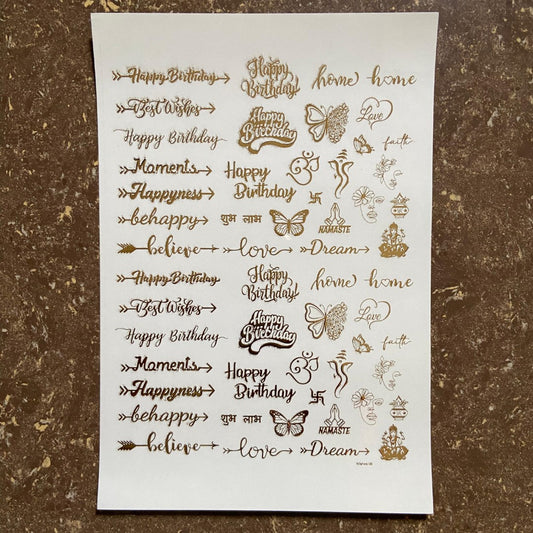 Happy Birthday
Happy
Birthday!
home
home
Best Wishes
Happy
Birthday
Love
Happy Birthday
faith
Moments
Happy
Birthday
Happyness
behappy
शुभ लाभ
NAMASTE
believe
love
Dream
Happy Birthday
Happy
Birthday!
home
home
Best Wishes
Happy
Birthday
Love
Happy Birthday
faith
Moments
Happy
Birthday
Happyness
behappy
शुभ लाभ
NAMASTE
believe
love
Dream